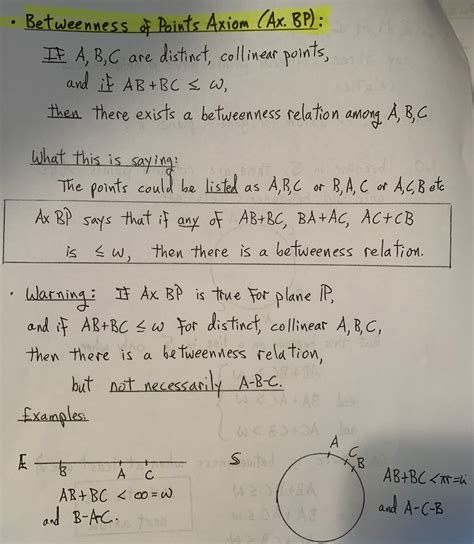 • Betweenness of Points Axiom (Ax. BP):
IF A, B, C are distinct, collinear points,
and if AB+BC ≤ ω,
then there exists a betweenness relation among A, B, C
What this is saying:
The points could be listed as A,B,C or B,A,C or A,C,B etc
Ax BP says that if any of AB+BC, BA+AC, AC+CB
is ≤ ω, then there is a betweeness relation.
• Warning: If Ax BP is true for plane P,
and if AB+BC ≤ ω for distinct, collinear A, B, C,
then there is a betweenness relation,
but not necessarily A-B-C.
Examples:
E
B A C
AB+BC < ∞=ω
and B-A-C.
S
A
C
B
AB+BC < πr=ω
and A-C-B